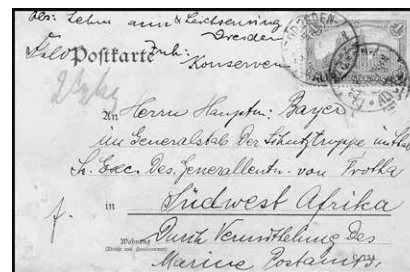 Abs: Lehmann & Leichsenring
Dresden
Feld Postkarte Inh:
Konserven
An Herrn Hauptm: Bayer
im Generalstab der Schutztruppe im Stabe
Sr. Exc. Des Generalleutn. von Trotha
in Südwest Afrika
Wohnung
(Straße und Hausnummer)
Durch Vermittelung Des
Marine Postamts.